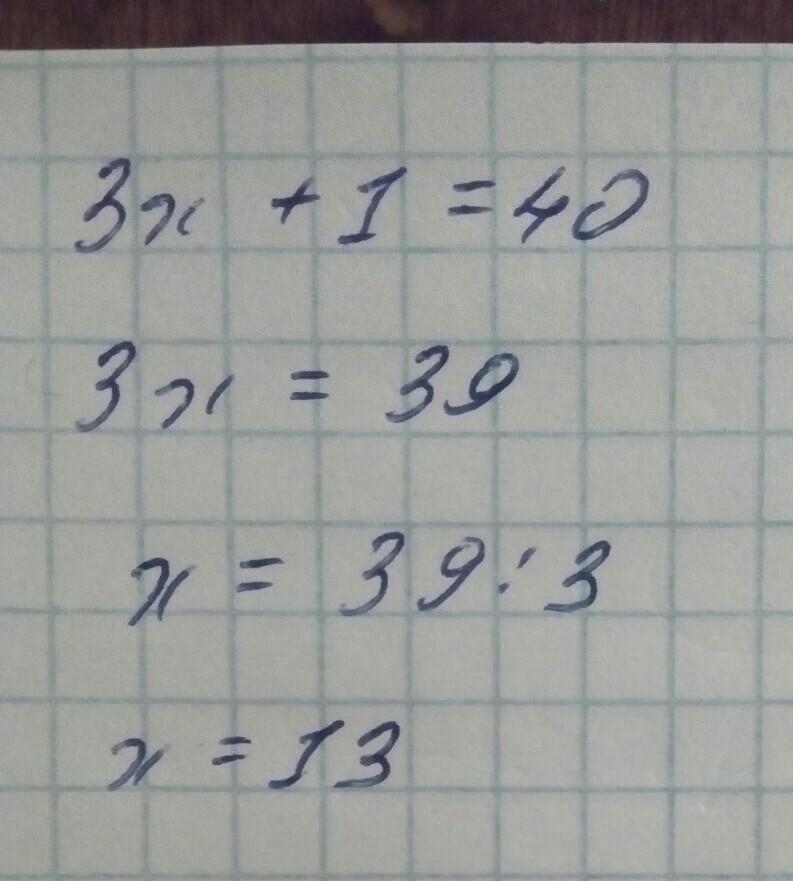 3x + 1 = 40
3x = 39
x = 39 : 3
x = 13